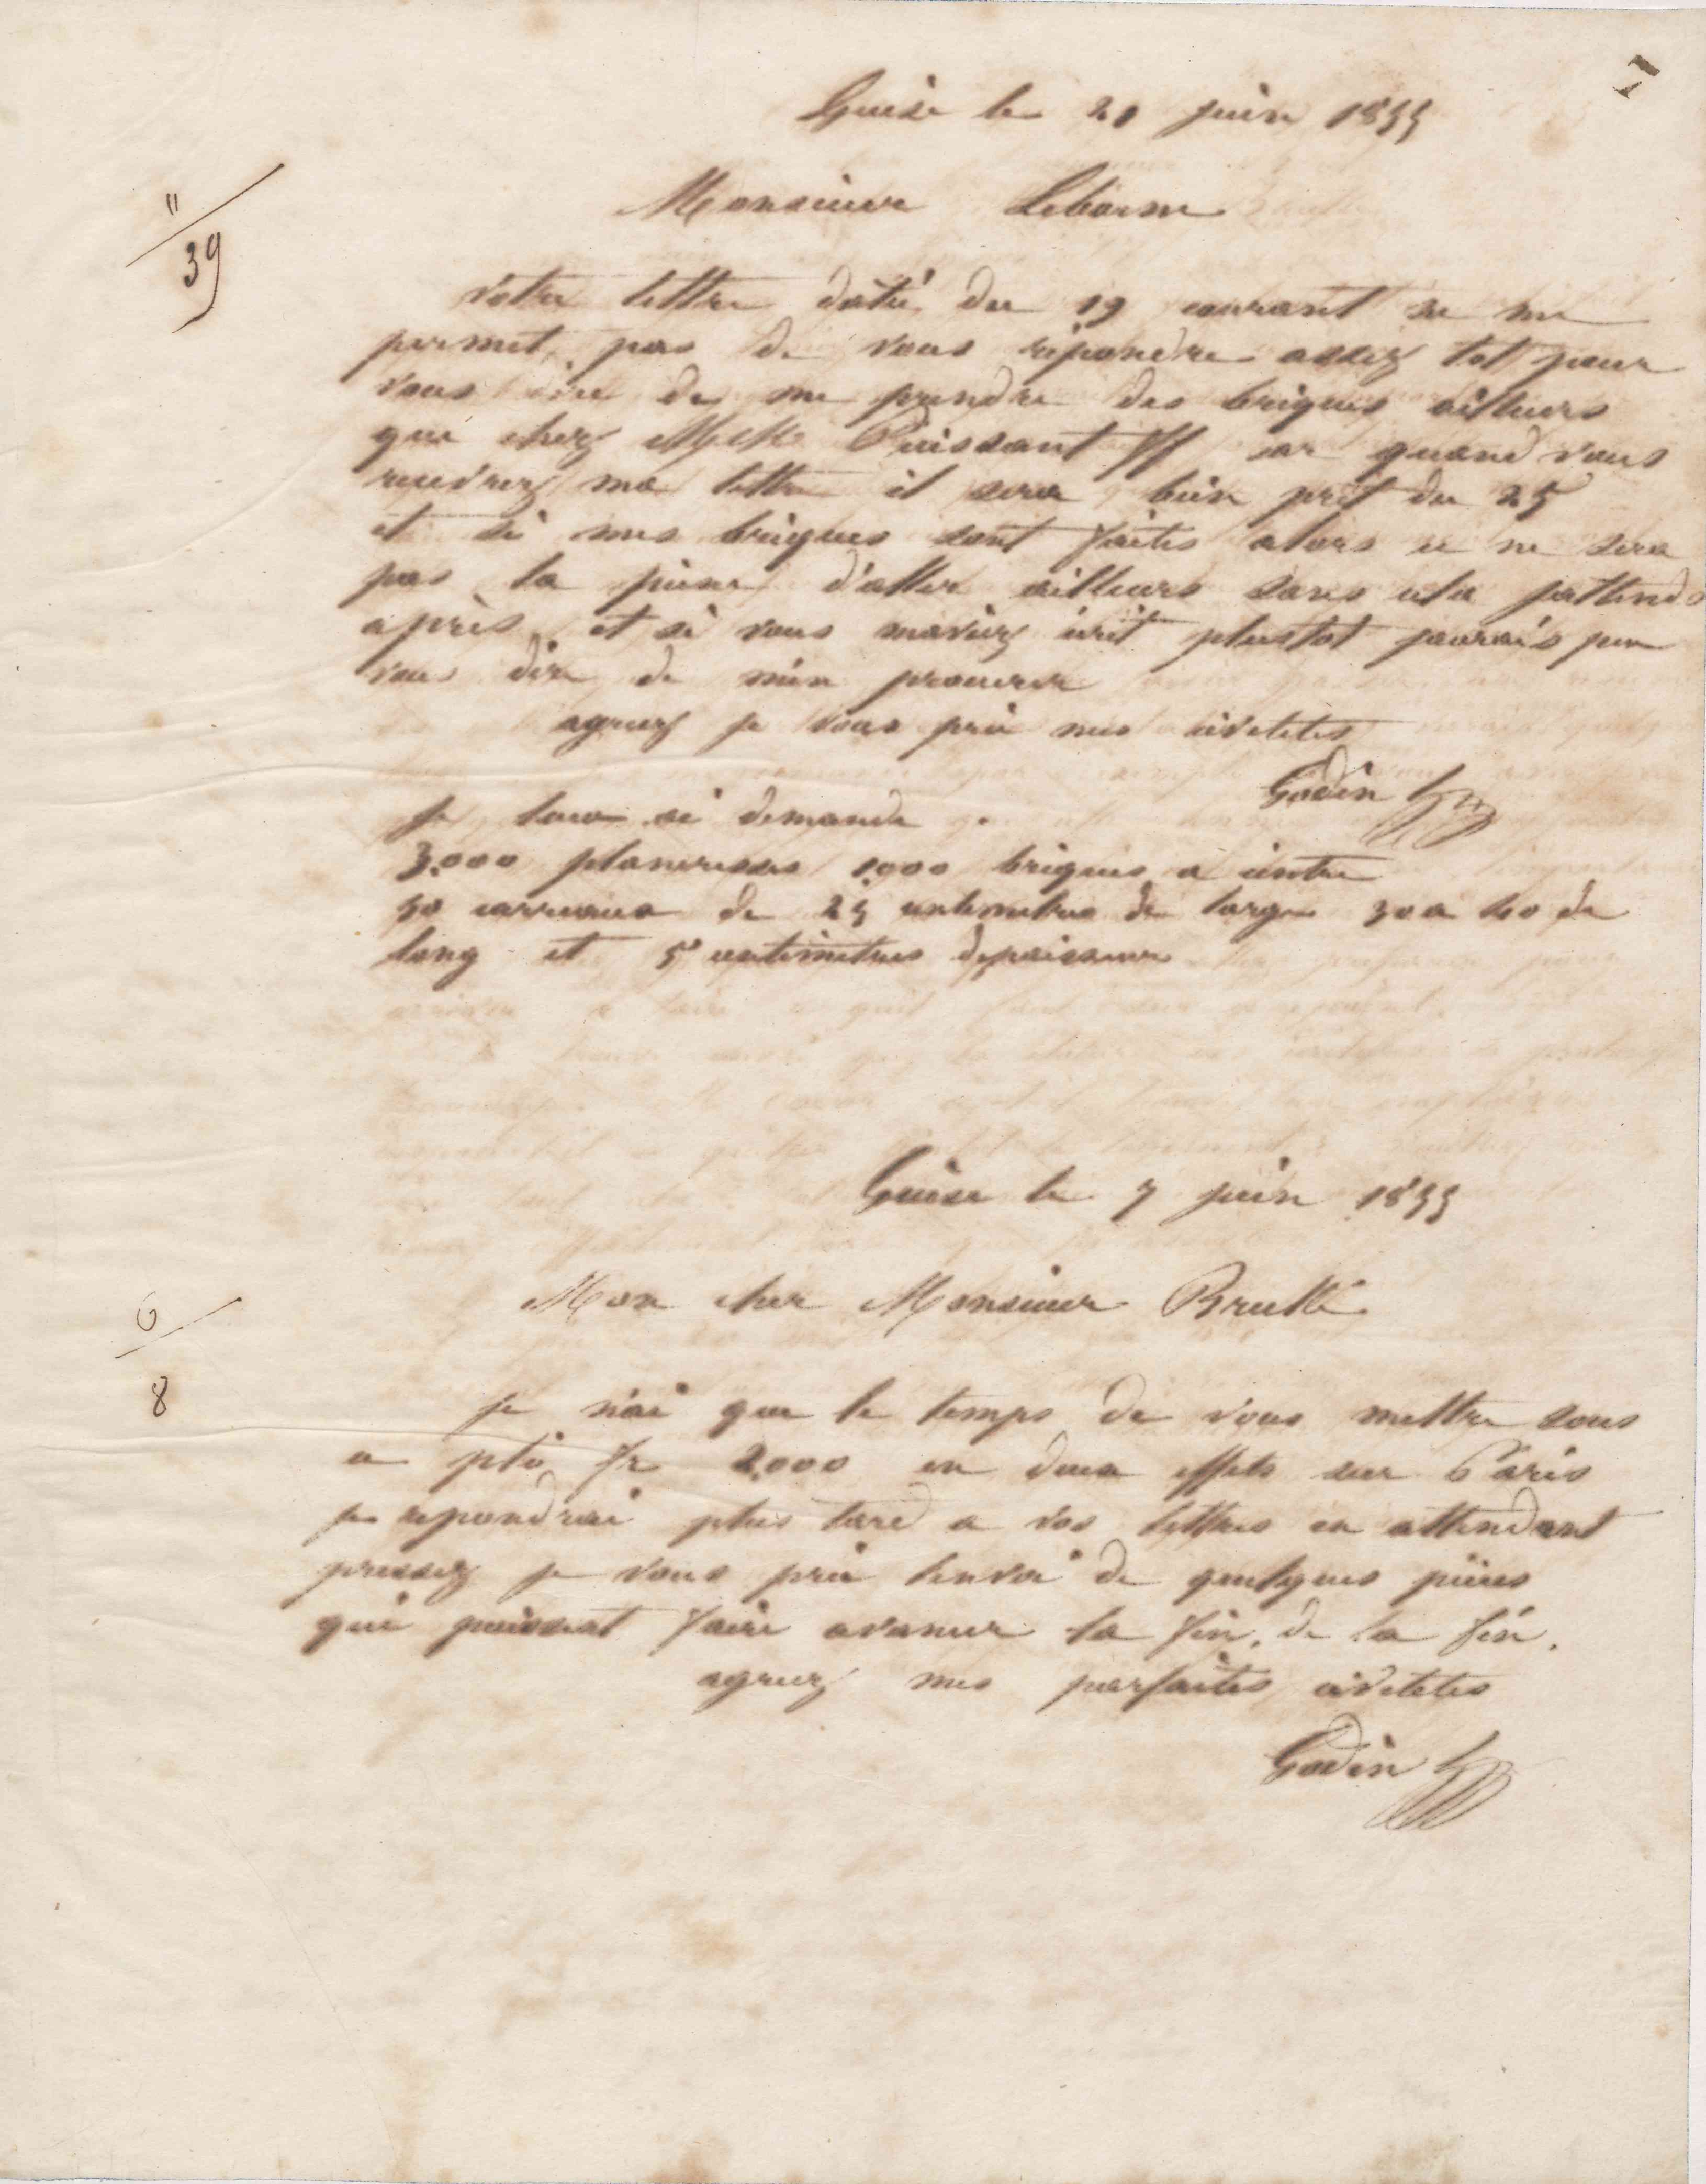 7
Guise le 20 juin 1855
Monsieur Leborne
"/39
votre lettre daté du 19 courant ne me
permet pas de vous répondre assez tot pour
vous dire de me prendre des briques ailleurs
que chez MM Puissant ff car quand vous
recevrez ma lettre il sera bien prêt du 25
et si mes briques sont faites alors ce ne sera
pas la peine d'aller ailleurs sans cela jattends
après et si vous maviez écrit plustot jaurais pu
vous dire de m'en procurer
agreez je vous prie mes civilités
Godin
Je demande
3.000 planeresses 1000 briques a cintre
50 carreaux de 25 centimetres de large 30 a 40 de
long et 5 centimetres depaisseur
Guise le 7 juin 1855
Mon cher Monsieur Brullé
6/8
je n'ai que le temps de vous mettre sous
ce pli fr 2.000 en deux effets sur Paris
je repondrai plus tard a vos lettres en attendant
pressez je vous prie lenvoi de quelques pièces
qui puissent faire avancer la fin de la fin.
agreez mes parfaites civilités
Godin